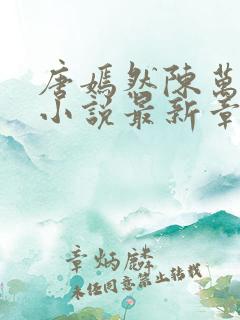 唐嫣然陈萬
小說最新章
章炳麟
未经同意禁止转载